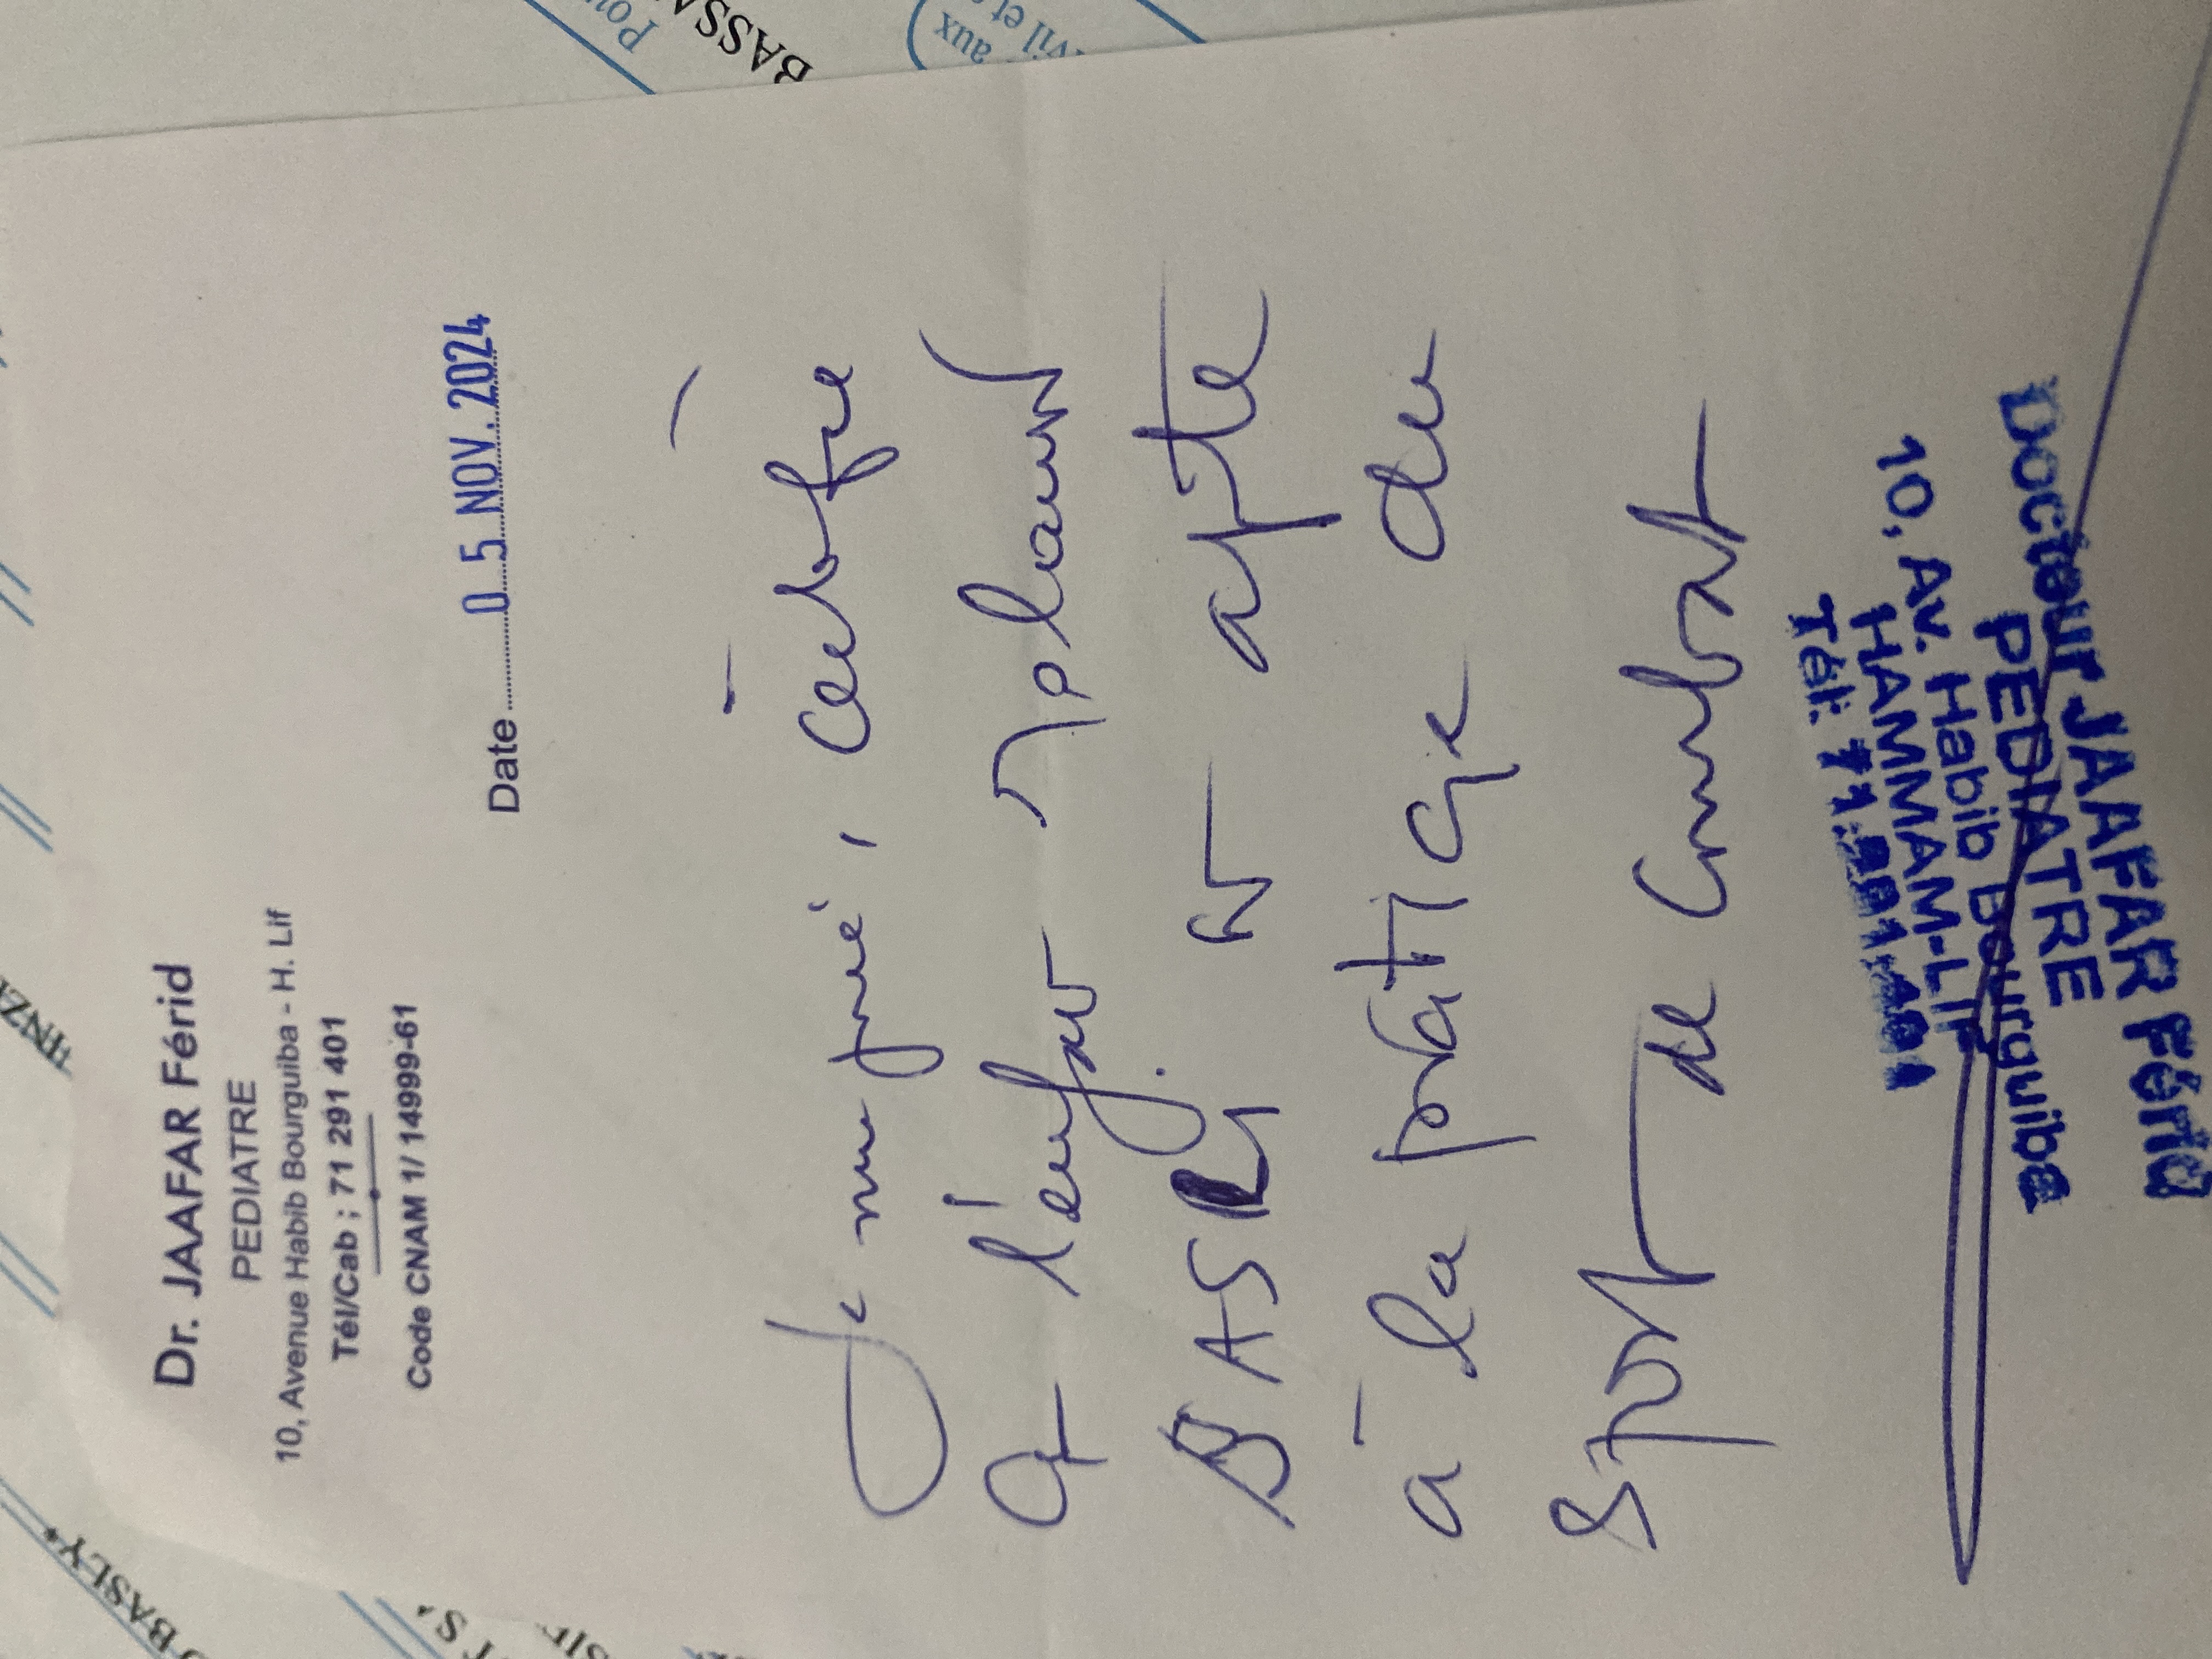 Dr. JAAFAR Férid
PEDIATRE
10, Avenue Habib Bourguiba - H. Lif
Tél/Cab : 71 291 401
Code CNAM 1/ 14999-61
Date 0 5 NOV. 2024
Je soussigné, certifie
que l'enfant
BASLI est apte
à la pratique du
sport de combat
Docteur JAAFAR Férid
PEDIATRE
10, Av. Habib Bourguiba
HAMMAM-LIF
Tél: 71.291.401
BASLY
BASSA
aux